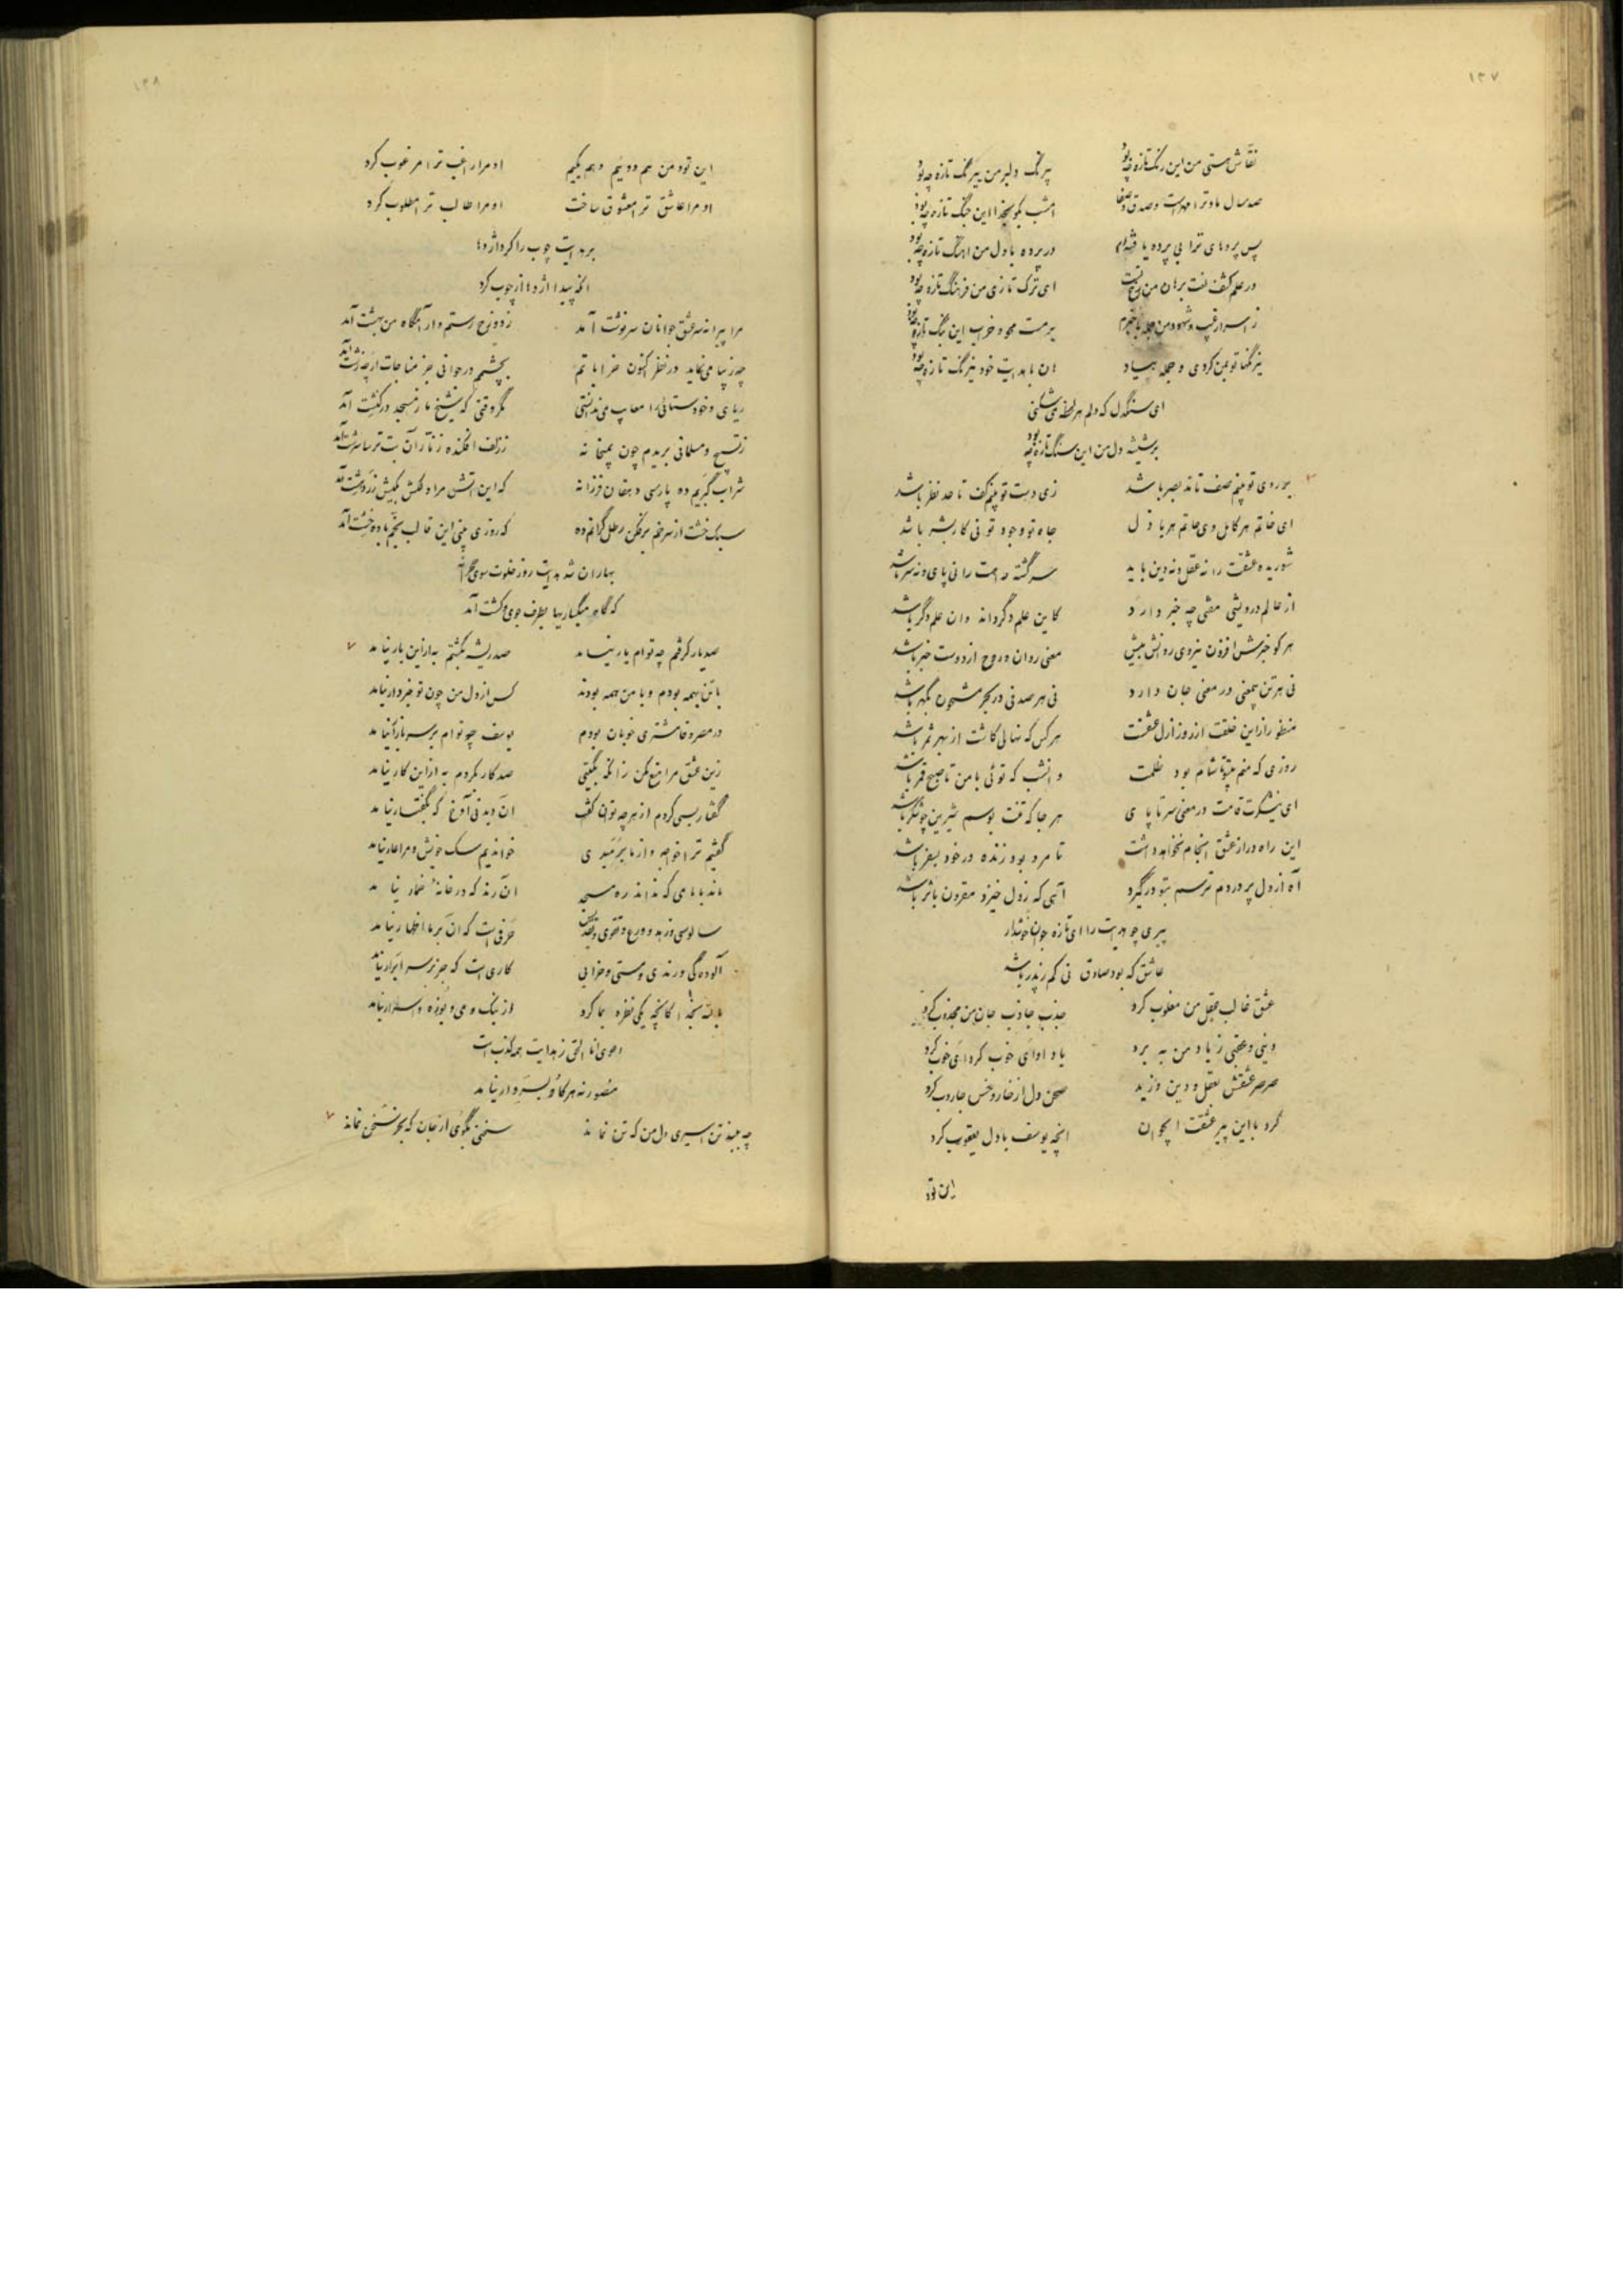 ۱۳۷
نقاش هستی من این رنگ تازه چه بود نیرنگ دلبر من نیرنگ تازه چه بود
صد سال ماند ترا عهد است و صدق و صفا امشب بگو بخدا این جنگ تازه چه بود
پس پرده‌های ترا بی پرده یافته‌ام در پرده با دل من آهنگ تازه چه بود
در علم کشف لغت برهان من رخ تست ای ترک تازی من فرهنگ تازه چه بود
ز اسرار غیب و شهود من جمله باخبرم سرمست محو و خراب این بنگ تازه چه بود
نیرنگها تو بمن کردی و جمله بیاد هان با هدایت خود نیرنگ تازه چه بود
ای سنگدل که دلم هر لحظه می‌شکنی
بر شیشه دل من این سنگ تازه چه بود
بر روی تو بینم صف تا مد بصر باشد زی دست تو بینم کف تا حد نظر باشد
ای خاتم هر کامل وی حاتم هر باذل جاه تو وجود تو نی کار بشر باشد
شوریده عشقت را نه عقل و نه دین باید سرگشته راهت را نی پای و نه سر باشد
از عالم درویشی مفتی چه خبر دارد کاین علم دگر داند وان علم دگر باشد
هر کو خبرش افزون نیروی روانش بیش معنی روان و روح از دوست خبر باشد
نی هر تن بمعنی در معنی جان دارد نی هر صدفی در بحر مشحون بگهر باشد
منظور ازین خلقت از روز ازل عشقت هر کس که نهالی کاشت از بهر ثمر باشد
روزی که منم بیتو تا شام بود ظلمت وانشب که توئی با من تا صبح قمر باشد
ای نیشکرت قامت در معنی سر تا پای هر جا که تنت بوسم شیرین چو شکر باشد
این راه دراز عشق انجام نخواهد داشت تا مرد بود زنده در خود بسفر باشد
آه از دل پر دردم ترسم بتو درگیرد آهی که ز دل خیزد مقرون باثر باشد
پیری چو هدایت را ای تازه جوان خوشدار
عاشق که بود صادق نی کم ز پدر باشد
عشق غالب عقل من مغلوب کرد جذب جاذب جان من مجذوب کرد
دینی و عقبی ز یاد من به برد یاد او ای خوب کرد ای خوب کرد
صرصر عشقش بعقل و دین وزید صحن دل از خار و خس جاروب کرد
کرد با این پیر عشقت ایجوان آنچه یوسف با دل یعقوب کرد
این تو د
۱۳۸
این تو و من هم دوئیم و هم یکیم او مرا راغب ترا مرغوب کرد
او مرا عاشق ترا معشوق ساخت او مرا طالب ترا مطلوب کرد
بر هدایت چوب را کرد اژدها
آنکه پیدا اژدها از چوب کرد
مرا پیرانه سر عشق جوانان سرنوشت آمد ز دوزخ رستم و آرامگاه من بهشت آمد
چه زیبا می‌نماید در نظر اکنون خراباتم بچشمم در جوانی جز مناجات ار چه زشت آمد
ریای و خودستائی را معایب می‌ندانستی مگر وقتی که شیخ ما ز مسجد در کنشت آمد
ز تسبیح و مسلمانی بریدم چون بمیخانه ز زلف افکنده زنار آن بت ترسا سرشت آمد
شراب گبریم ده پارسی دهقان فرزانه که این آتش مرا دلکش بکیش زردهشت آمد
سبک خشت از سر خم برفکن رطل گرانم ده که روزی بینی این قالب بخم باده خشت آمد
بهاران شد هدایت روز خلوت سوی صحرا نه
که گاه میگساریها بطرف جوی و کشت آمد
صد یار گرفتم چه توام یار نیامد صد ریشه بکشتم به ازین بار نیامد
با تن بهمه بودم و با من همه بودند کس از دل من چون تو خبردار نیامد
در مصر وفا مشتری خوبان بودم یوسف چو توام بر سر بازار نیامد
زین عشق مرا منع مکن زانکه بگیتی صد کار بکردم به ازین کار نیامد
گفتار بسی کردم از هر چه توان گفت آن دید نی آوخ که بگفتار نیامد
گفتیم ترا خواجه و از ما برمیدی خواندیم سگ خویش و مرا عار نیامد
ماند بامامی که نداند ره مسجد آن رند که در خانه خمار نیامد
سالوسی و زهد و ورع و تقوی و تقدیس حرفی است که آن بر ما اظهار نیامد
آلوده‌گی و رندی و مستی و خرابی کاری است که جز بر سر ابرار نیامد
بالله بخدا کانچه یکی نظره بما کرد از بنگ و می و بوزه و اسرار نیامد
دعوی انا الحق ز هدایت همه کذب است
منصور نه هر کاو بسر دار نیامد
چه ببیند تن اسیری دل من که تن نماند سخنی بگوی از جان که بجز سخن نماند